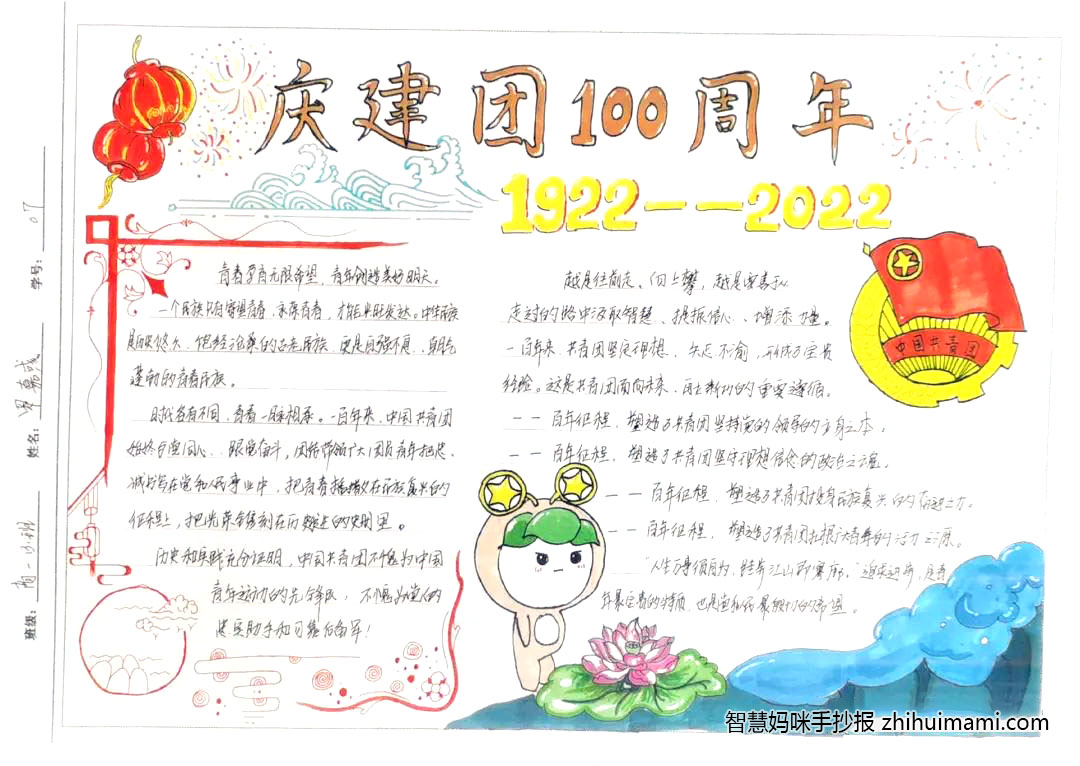 庆建团100周年
1922——2022
青春孕育无限希望，青年创造美好明天。
一个民族只有寄望青春、永葆青春，才能兴旺发达。中华民族
是历史悠久、饱经沧桑的古老民族，更是自强不息、朝气
蓬勃的青春民族。
时代各有不同，青春一脉相承。一百年来，中国共青团
始终与党同心、跟党奋斗，团结带领广大团员青年把忠
诚书写在党和人民事业中，把青春播撒在民族复兴的
征程上，把光荣镌刻在历史行进的史册里。
历史和实践充分证明，中国共青团不愧为中国
青年运动的先锋队，不愧为党的
忠实助手和可靠后备军！
越是往前走、向上攀，越是要善于从
走过的路中汲取智慧、提振信心、增添力量。
一百年来，共青团坚定理想、矢志不渝，形成了宝贵
经验。这是共青团面向未来、再立新功的重要遵循。
——百年征程，塑造了共青团坚持党的领导的立身之本。
——百年征程，塑造了共青团坚守理想信念的政治之魂。
——百年征程，塑造了共青团投身民族复兴的奋进之力。
——百年征程，塑造了共青团扎根广大青年的活力之源。
“人生万事须自为，跬步江山即寥廓。”追求进步，是青
年最宝贵的特质，也是党和人民最殷切的希望。
中国共青团
学号：07
姓名：
班级：
智慧妈咪手抄报 zhihuimami.com